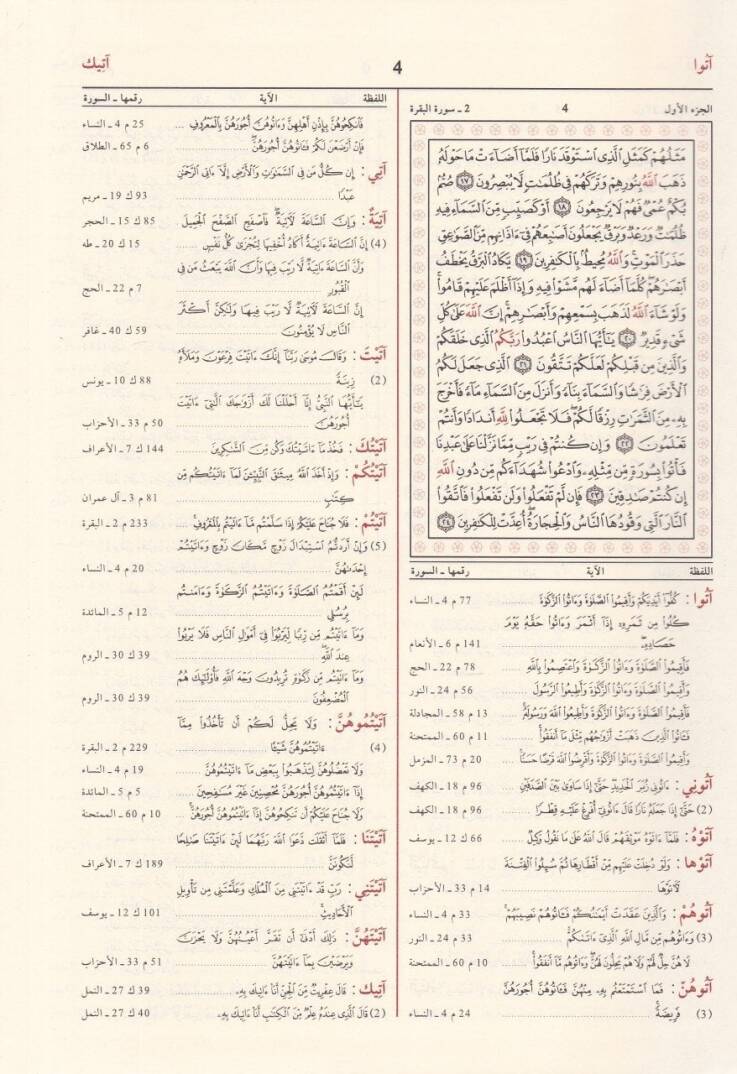 آتوا
4
آتيك
الجزء الأول
4
2 ـ سورة البقرة
مَثَلُهُمْ كَمَثَلِ ٱلَّذِى ٱسْتَوْقَدَ نَارًا فَلَمَّآ أَضَآءَتْ مَا حَوْلَهُۥ
ذَهَبَ ٱللَّهُ بِنُورِهِمْ وَتَرَكَهُمْ فِى ظُلُمَٰتٍ لَّا يُبْصِرُونَ ١٧ صُمٌّۢ
بُكْمٌ عُمْىٌ فَهُمْ لَا يَرْجِعُونَ ١٨ أَوْ كَصَيِّبٍ مِّنَ ٱلسَّمَآءِ فِيهِ
ظُلُمَٰتٌ وَرَعْدٌ وَبَرْقٌ يَجْعَلُونَ أَصَٰبِعَهُمْ فِىٓ ءَاذَانِهِم مِّنَ ٱلصَّوَٰعِقِ
حَذَرَ ٱلْمَوْتِ وَٱللَّهُ مُحِيطٌۢ بِٱلْكَٰفِرِينَ ١٩ يَكَادُ ٱلْبَرْقُ يَخْطَفُ
أَبْصَٰرَهُمْ كُلَّمَآ أَضَآءَ لَهُم مَّشَوْا۟ فِيهِ وَإِذَآ أَظْلَمَ عَلَيْهِمْ قَامُوا۟
وَلَوْ شَآءَ ٱللَّهُ لَذَهَبَ بِسَمْعِهِمْ وَأَبْصَٰرِهِمْ إِنَّ ٱللَّهَ عَلَىٰ كُلِّ
شَىْءٍ قَدِيرٌ ٢٠ يَٰٓأَيُّهَا ٱلنَّاسُ ٱعْبُدُوا۟ رَبَّكُمُ ٱلَّذِى خَلَقَكُمْ
وَٱلَّذِينَ مِن قَبْلِكُمْ لَعَلَّكُمْ تَتَّقُونَ ٢١ ٱلَّذِى جَعَلَ لَكُمُ
ٱلْأَرْضَ فِرَٰشًا وَٱلسَّمَآءَ بِنَآءً وَأَنزَلَ مِنَ ٱلسَّمَآءِ مَآءً فَأَخْرَجَ
بِهِۦ مِنَ ٱلثَّمَرَٰتِ رِزْقًا لَّكُمْ فَلَا تَجْعَلُوا۟ لِلَّهِ أَندَادًا وَأَنتُمْ
تَعْلَمُونَ ٢٢ وَإِن كُنتُمْ فِى رَيْبٍ مِّمَّا نَزَّلْنَا عَلَىٰ عَبْدِنَا
فَأْتُوا۟ بِسُورَةٍ مِّن مِّثْلِهِۦ وَٱدْعُوا۟ شُهَدَآءَكُم مِّن دُونِ ٱللَّهِ
إِن كُنتُمْ صَٰدِقِينَ ٢٣ فَإِن لَّمْ تَفْعَلُوا۟ وَلَن تَفْعَلُوا۟ فَٱتَّقُوا۟
ٱلنَّارَ ٱلَّتِى وَقُودُهَا ٱلنَّاسُ وَٱلْحِجَارَةُ أُعِدَّتْ لِلْكَٰفِرِينَ ٢٤
اللفظة الآية رقمها ـ السورة
آتوا : كُفُّوٓا۟ أَيْدِيَكُمْ وَأَقِيمُوا۟ ٱلصَّلَوٰةَ وَءَاتُوا۟ ٱلزَّكَوٰةَ 77 م 4 ـ النساء
كُلُوا۟ مِن ثَمَرِهِۦٓ إِذَآ أَثْمَرَ وَءَاتُوا۟ حَقَّهُۥ يَوْمَ
حَصَادِهِۦ 141 م 6 ـ الأنعام
فَأَقِيمُوا۟ ٱلصَّلَوٰةَ وَءَاتُوا۟ ٱلزَّكَوٰةَ وَٱعْتَصِمُوا۟ بِٱللَّهِ 78 م 22 ـ الحج
وَأَقِيمُوا۟ ٱلصَّلَوٰةَ وَءَاتُوا۟ ٱلزَّكَوٰةَ وَأَطِيعُوا۟ ٱلرَّسُولَ 56 م 24 ـ النور
فَأَقِيمُوا۟ ٱلصَّلَوٰةَ وَءَاتُوا۟ ٱلزَّكَوٰةَ وَأَطِيعُوا۟ ٱللَّهَ وَرَسُولَهُۥ 13 م 58 ـ المجادلة
فَـَٔاتُوا۟ ٱلَّذِينَ ذَهَبَتْ أَزْوَٰجُهُم مِّثْلَ مَآ أَنفَقُوا۟ 11 م 60 ـ الممتحنة
وَأَقِيمُوا۟ ٱلصَّلَوٰةَ وَءَاتُوا۟ ٱلزَّكَوٰةَ وَأَقْرِضُوا۟ ٱللَّهَ قَرْضًا حَسَنًا 20 م 73 ـ المزمل
آتوني : ءَاتُونِى زُبَرَ ٱلْحَدِيدِ حَتَّىٰٓ إِذَا سَاوَىٰ بَيْنَ ٱلصَّدَفَيْنِ 96 م 18 ـ الكهف
(2) حَتَّىٰٓ إِذَا جَعَلَهُۥ نَارًا قَالَ ءَاتُونِىٓ أُفْرِغْ عَلَيْهِ قِطْرًا 96 م 18 ـ الكهف
آتوه : فَلَمَّآ ءَاتَوْهُ مَوْثِقَهُمْ قَالَ ٱللَّهُ عَلَىٰ مَا نَقُولُ وَكِيلٌ 66 ك 12 ـ يوسف
آتوها : وَلَوْ دُخِلَتْ عَلَيْهِم مِّنْ أَقْطَارِهَا ثُمَّ سُئِلُوا۟ ٱلْفِتْنَةَ
لَـَٔاتَوْهَا 14 م 33 ـ الأحزاب
آتوهم : وَٱلَّذِينَ عَقَدَتْ أَيْمَٰنُكُمْ فَـَٔاتُوهُمْ نَصِيبَهُمْ 33 م 4 ـ النساء
(3) وَءَاتُوهُم مِّن مَّالِ ٱللَّهِ ٱلَّذِىٓ ءَاتَىٰكُمْ 33 م 24 ـ النور
لَا هُنَّ حِلٌّ لَّهُمْ وَلَا هُمْ يَحِلُّونَ لَهُنَّ وَءَاتُوهُم مَّآ أَنفَقُوا۟ 10 م 60 ـ الممتحنة
آتوهن : فَمَا ٱسْتَمْتَعْتُم بِهِۦ مِنْهُنَّ فَـَٔاتُوهُنَّ أُجُورَهُنَّ
(3) فَرِيضَةً 24 م 4 ـ النساء
اللفظة الآية رقمها ـ السورة
فَٱنكِحُوهُنَّ بِإِذْنِ أَهْلِهِنَّ وَءَاتُوهُنَّ أُجُورَهُنَّ بِٱلْمَعْرُوفِ 25 م 4 ـ النساء
فَإِنْ أَرْضَعْنَ لَكُمْ فَـَٔاتُوهُنَّ أُجُورَهُنَّ 6 م 65 ـ الطلاق
آتي : إِن كُلُّ مَن فِى ٱلسَّمَٰوَٰتِ وَٱلْأَرْضِ إِلَّآ ءَاتِى ٱلرَّحْمَٰنِ
عَبْدًا 93 ك 19 ـ مريم
آتية : وَإِنَّ ٱلسَّاعَةَ لَـَٔاتِيَةٌ فَٱصْفَحِ ٱلصَّفْحَ ٱلْجَمِيلَ 85 ك 15 ـ الحجر
(4) إِنَّ ٱلسَّاعَةَ ءَاتِيَةٌ أَكَادُ أُخْفِيهَا لِتُجْزَىٰ كُلُّ نَفْسٍۭ 15 ك 20 ـ طه
وَأَنَّ ٱلسَّاعَةَ ءَاتِيَةٌ لَّا رَيْبَ فِيهَا وَأَنَّ ٱللَّهَ يَبْعَثُ مَن فِى
ٱلْقُبُورِ 7 م 22 ـ الحج
إِنَّ ٱلسَّاعَةَ لَـَٔاتِيَةٌ لَّا رَيْبَ فِيهَا وَلَٰكِنَّ أَكْثَرَ
ٱلنَّاسِ لَا يُؤْمِنُونَ 59 ك 40 ـ غافر
آتيت : وَقَالَ مُوسَىٰ رَبَّنَآ إِنَّكَ ءَاتَيْتَ فِرْعَوْنَ وَمَلَأَهُۥ
(2) زِينَةً 88 ك 10 ـ يونس
يَٰٓأَيُّهَا ٱلنَّبِىُّ إِنَّآ أَحْلَلْنَا لَكَ أَزْوَٰجَكَ ٱلَّٰتِىٓ ءَاتَيْتَ
أُجُورَهُنَّ 50 م 33 ـ الأحزاب
آتيتك : فَخُذْ مَآ ءَاتَيْتُكَ وَكُن مِّنَ ٱلشَّٰكِرِينَ 144 ك 7 ـ الأعراف
آتيتكم : وَإِذْ أَخَذَ ٱللَّهُ مِيثَٰقَ ٱلنَّبِيِّۦنَ لَمَآ ءَاتَيْتُكُم مِّن
كِتَٰبٍ 81 م 3 ـ آل عمران
آتيتم : فَلَا جُنَاحَ عَلَيْكُمْ إِذَا سَلَّمْتُم مَّآ ءَاتَيْتُم بِٱلْمَعْرُوفِ 233 م 2 ـ البقرة
(5) وَإِنْ أَرَدتُّمُ ٱسْتِبْدَالَ زَوْجٍ مَّكَانَ زَوْجٍ وَءَاتَيْتُمْ
إِحْدَىٰهُنَّ 20 م 4 ـ النساء
لَئِنْ أَقَمْتُمُ ٱلصَّلَوٰةَ وَءَاتَيْتُمُ ٱلزَّكَوٰةَ وَءَامَنتُم
بِرُسُلِى 12 م 5 ـ المائدة
وَمَآ ءَاتَيْتُم مِّن رِّبًا لِّيَرْبُوَا۟ فِىٓ أَمْوَٰلِ ٱلنَّاسِ فَلَا يَرْبُوا۟
عِندَ ٱللَّهِ 39 ك 30 ـ الروم
وَمَآ ءَاتَيْتُم مِّن زَكَوٰةٍ تُرِيدُونَ وَجْهَ ٱللَّهِ فَأُو۟لَٰٓئِكَ هُمُ
ٱلْمُضْعِفُونَ 39 ك 30 ـ الروم
آتيتموهن : وَلَا يَحِلُّ لَكُمْ أَن تَأْخُذُوا۟ مِمَّآ
(4) ءَاتَيْتُمُوهُنَّ شَيْـًٔا 229 م 2 ـ البقرة
وَلَا تَعْضُلُوهُنَّ لِتَذْهَبُوا۟ بِبَعْضِ مَآ ءَاتَيْتُمُوهُنَّ 19 م 4 ـ النساء
إِذَآ ءَاتَيْتُمُوهُنَّ أُجُورَهُنَّ مُحْصِنِينَ غَيْرَ مُسَٰفِحِينَ 5 م 5 ـ المائدة
وَلَا جُنَاحَ عَلَيْكُمْ أَن تَنكِحُوهُنَّ إِذَآ ءَاتَيْتُمُوهُنَّ أُجُورَهُنَّ 10 م 60 ـ الممتحنة
آتيتنا : فَلَمَّآ أَثْقَلَت دَّعَوَا ٱللَّهَ رَبَّهُمَا لَئِنْ ءَاتَيْتَنَا صَٰلِحًا
لَّنَكُونَنَّ 189 ك 7 ـ الأعراف
آتيتني : رَبِّ قَدْ ءَاتَيْتَنِى مِنَ ٱلْمُلْكِ وَعَلَّمْتَنِى مِن تَأْوِيلِ
ٱلْأَحَادِيثِ 101 ك 12 ـ يوسف
آتيتهن : ذَٰلِكَ أَدْنَىٰٓ أَن تَقَرَّ أَعْيُنُهُنَّ وَلَا يَحْزَنَّ
وَيَرْضَيْنَ بِمَآ ءَاتَيْتَهُنَّ 51 م 33 ـ الأحزاب
آتيك : قَالَ عِفْرِيتٌ مِّنَ ٱلْجِنِّ أَنَا۠ ءَاتِيكَ بِهِۦ 39 ك 27 ـ النمل
(2) قَالَ ٱلَّذِى عِندَهُۥ عِلْمٌ مِّنَ ٱلْكِتَٰبِ أَنَا۠ ءَاتِيكَ بِهِۦ 40 ك 27 ـ النمل